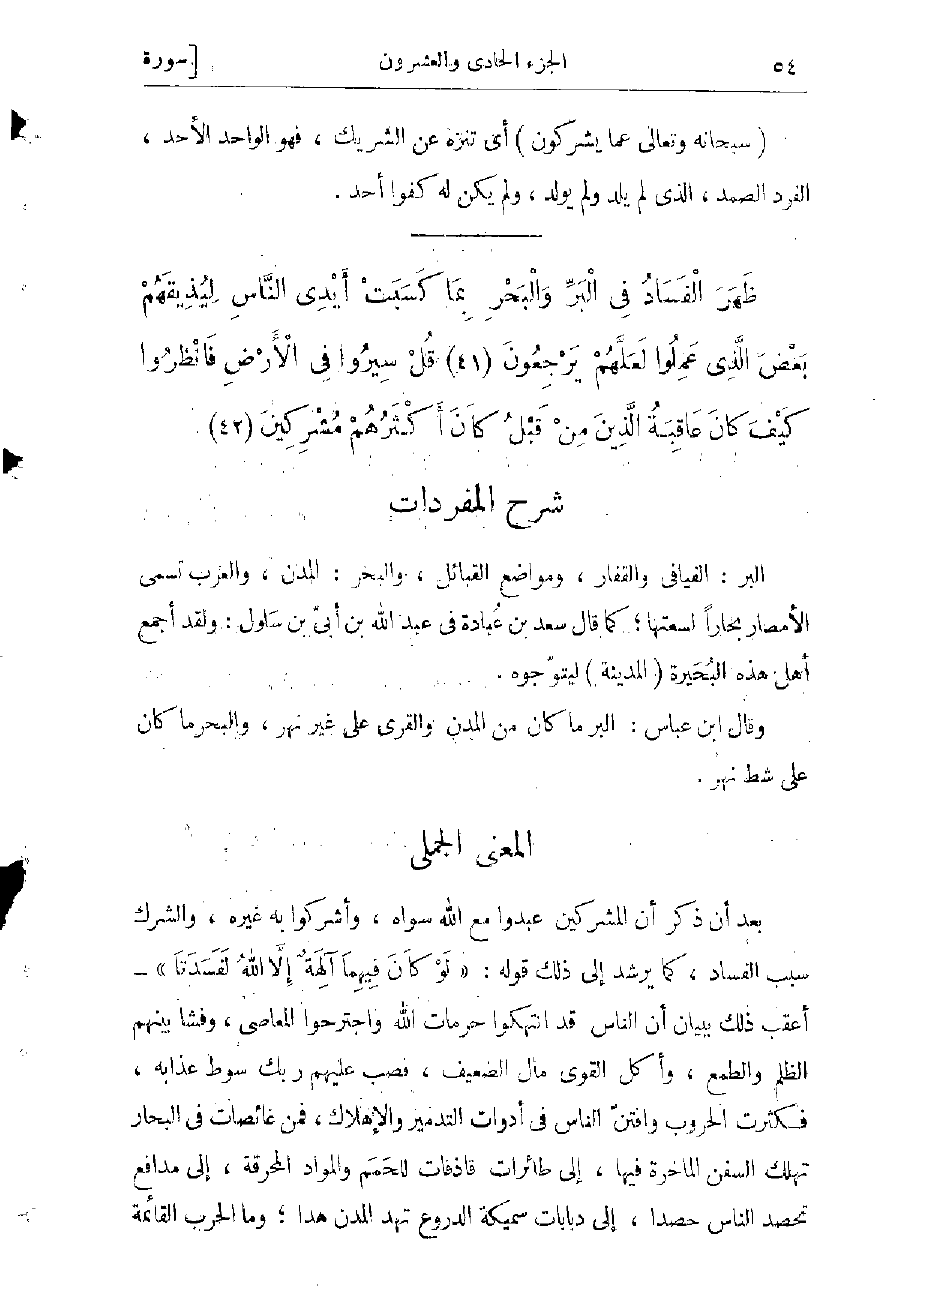 ٥٤ الجزء الحادى والعشرون [سورة
( سبحانه وتعالى عما يشركون ) أى تنزه عن الشريك ، فهو الواحد الأحد ،
الفرد الصمد ، الذى لم يلد ولم يولد ، ولم يكن له كفوا أحد .
ظَهَرَ الْفَسَادُ فِى الْبَرِّ وَالْبَحْرِ بِمَا كَسَبَتْ أَيْدِى النَّاسِ لِيُذِيقَهُمْ
بَعْضَ الَّذِى عَمِلُوا لَعَلَّهُمْ يَرْجِعُونَ (٤١) قُلْ سِيرُوا فِى الْأَرْضِ فَانْظُرُوا
كَيْفَ كَانَ عَاقِبَةُ الَّذِينَ مِنْ قَبْلُ كَانَ أَكْثَرُهُمْ مُشْرِكِينَ (٤٢)
شرح المفردات
البر : الفيافى والقفار ، ومواضع القبائل ، والبحر : المدن ، والعرب تسمى
الأمصار بحاراً لسعتها ؛ كما قال سعد بن عُبادة فى عبد الله بن أبىّ بن سَلول : ولقد أجمع
أهل هذه البُحَيرة ( المدينة ) ليتوّجوه .
وقال ابن عباس : البر ما كان من المدن والقرى على غير نهر ، والبحر ما كان
على شط نهر .
المعنى الجملى
بعد أن ذكر أن المشركين عبدوا مع الله سواه ، وأشركوا به غيره ، والشرك
سبب الفساد ، كما يرشد إلى ذلك قوله : « لَوْ كَانَ فِيهِمَا آلِهَةٌ إِلَّا اللهُ لَفَسَدَتَا » –
أعقب ذلك ببيان أن الناس قد انتهكوا حرمات الله واجترحوا المعاصى ، وفشا بينهم
الظلم والطمع ، وأكل القوى مال الضعيف ، فصب عليهم ربك سوط عذابه ،
فكثرت الحروب وافتنّ الناس فى أدوات التدمير والإهلاك ، فمن غائصات فى البحار
تهلك السفن الماخرة فيها ، إلى طائرات قاذفات للحَمَم والمواد المحرقة ، إلى مدافع
تحصد الناس حصدا ، إلى دبابات سميكة الدروع تهد المدن هدا ؛ وما الحرب القائمة